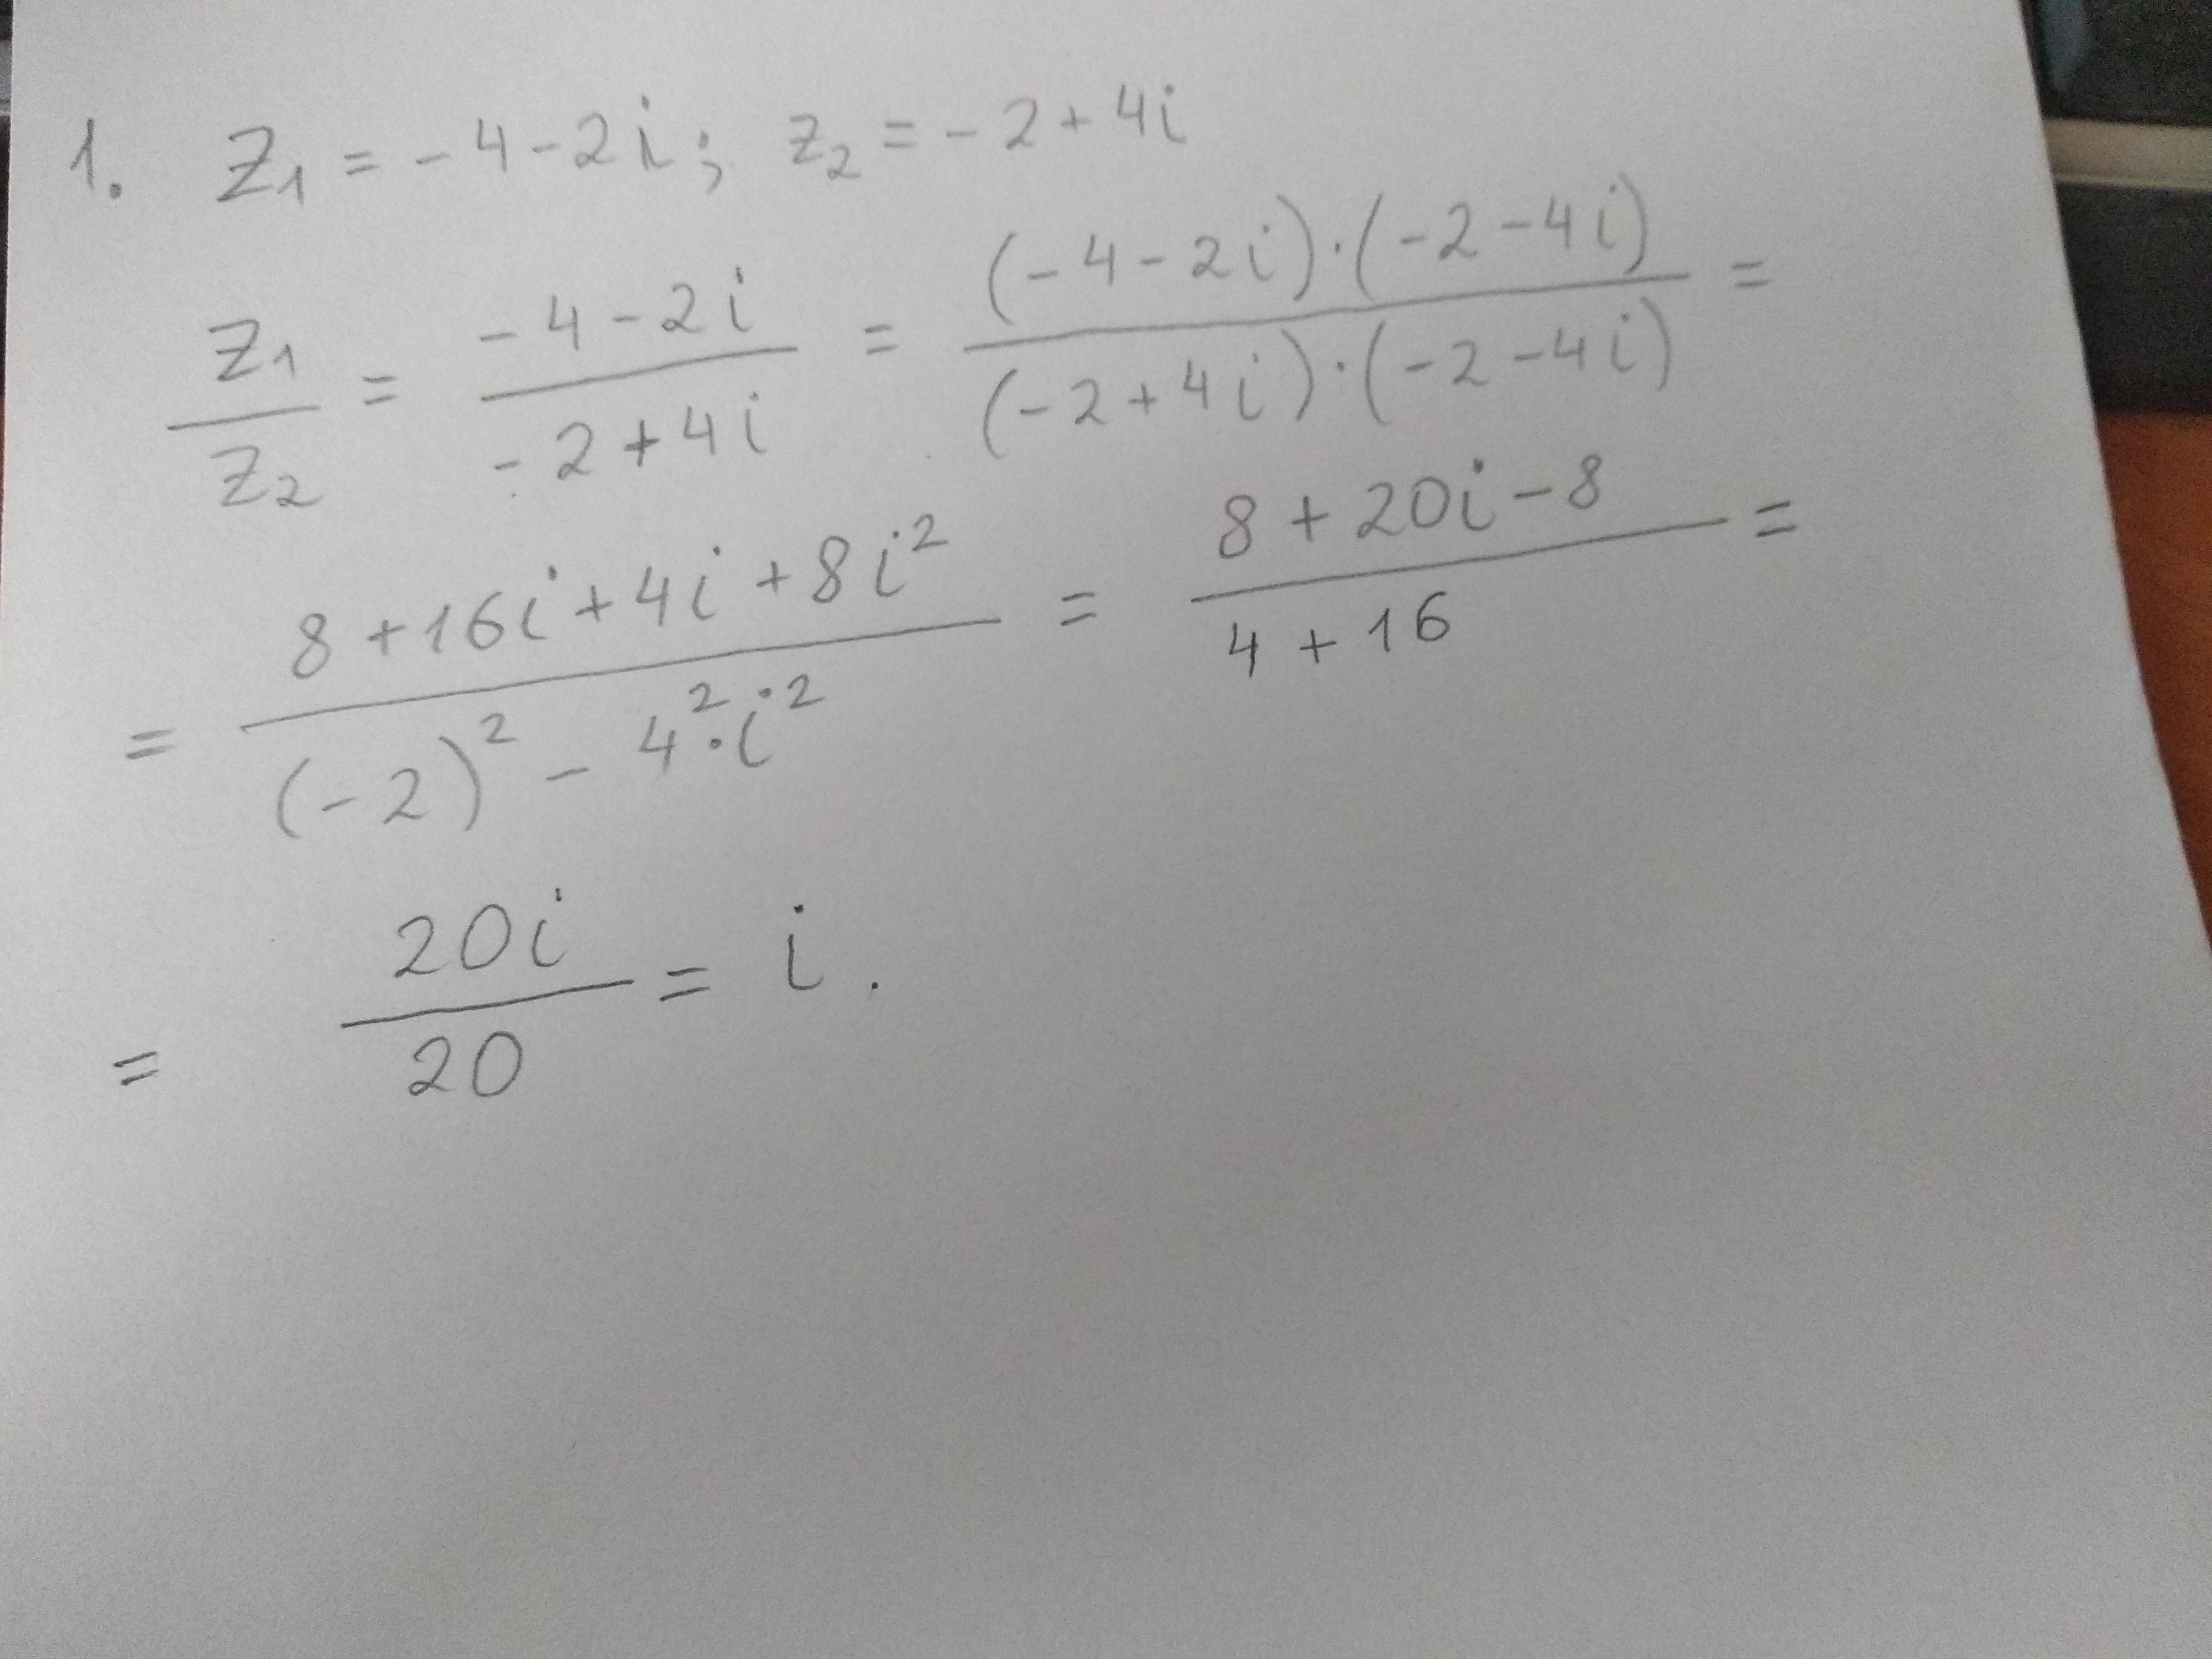 1. z₁ = -4-2i; z₂ = -2+4i
z₁/z₂ = (-4-2i)/(-2+4i) = ((-4-2i)·(-2-4i))/((-2+4i)·(-2-4i)) =
= (8+16i+4i+8i²)/((-2)²-4²·i²) = (8+20i-8)/(4+16) =
= 20i/20 = i.